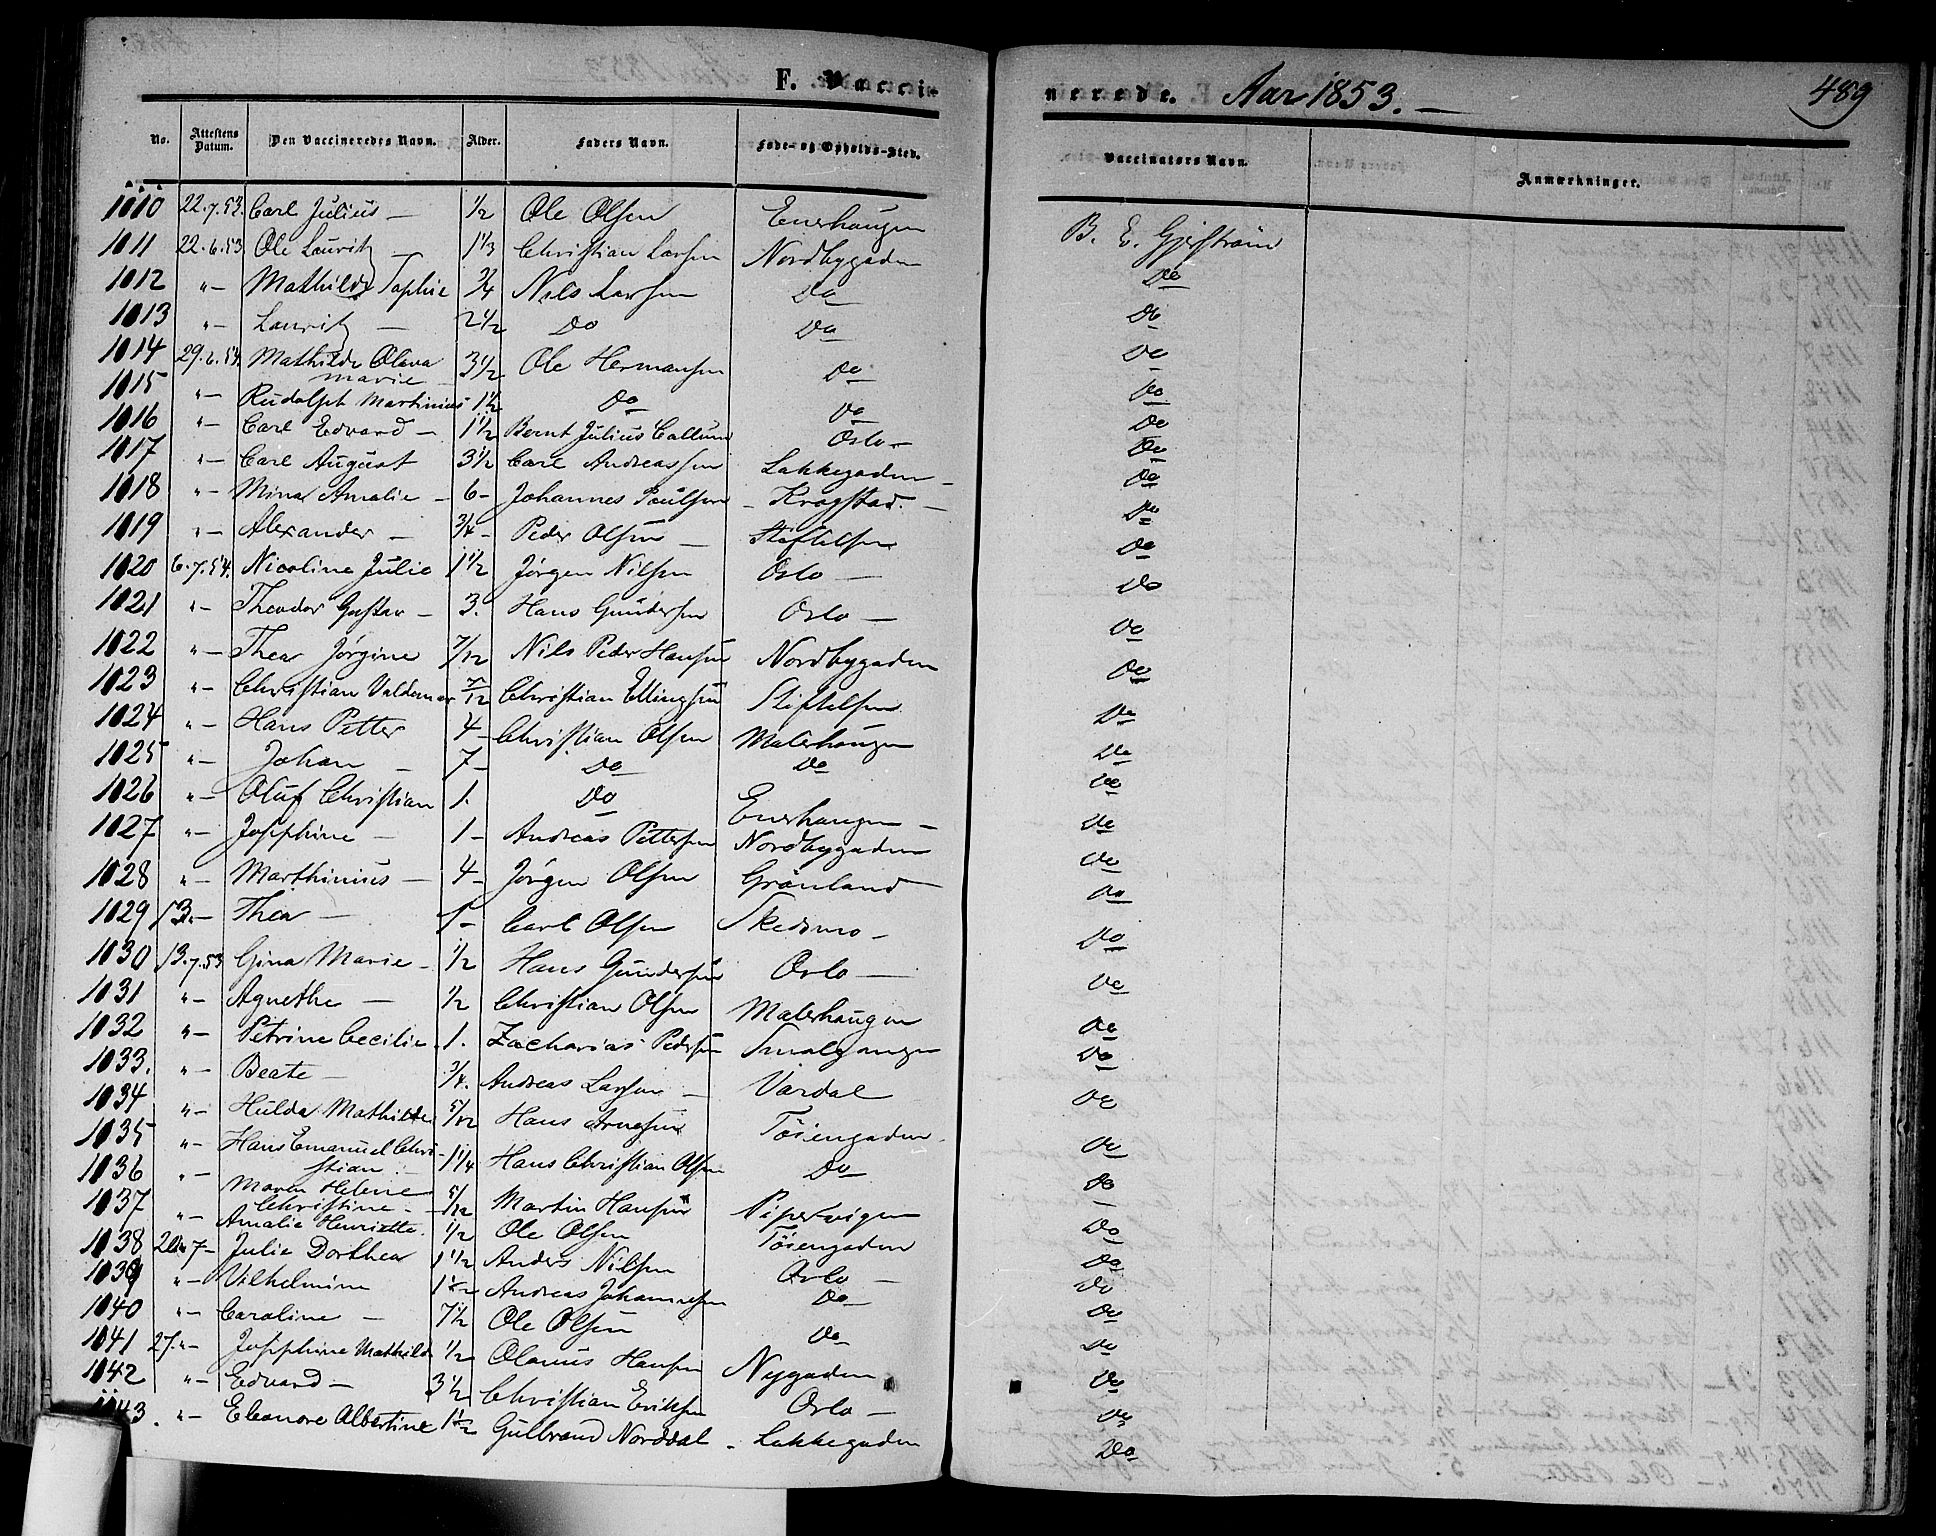 F. Vacci-
nerede. Aar 1853. —
489
No. Attestens Datum. Den Vaccineredes Navn. Alder. Faders Navn. Føde- og Opholds-Sted. Vaccinators Navn. Anmærkninger.
1010 22.7.53. Carl Julius — 1/2 Ole Olsen Enerhaugen B. E. Gjerström
1011 22.6.53 Ole Lauritz — 1 1/3 Christian Larsen Nordbygaden Do
1012 "— Mathilde Sophie 3/4 Nils Larsen Do Do
1013 "— Lauritz — 2 1/2 Do Do Do
1014 29.6.53. Mathilde Olava Marie — 3 1/2 Ole Hermansen Do Do
1015 "— Rudolph Martinius 1 1/2 Do Do Do
1016 "— Carl Edvard — 1 1/2 Bernt Julius Callum Oslo — Do
1017 "— Carl August 3 1/2 Carl Andreassen Lakkegaden — Do
1018 "— Mina Amalie — 6 — Johannes Poulsen — Krogstad. — Do
1019 "— Alexander — 3/4 — Peder Olsen — Stiftelsen Do
1020 6.7.53. Nicoline Julie 1 1/2 Jørgen Nilsen Oslo — Do
1021 "— Theodor Gustav — 3. Hans Gundersen Oslo — Do
1022 "— Thea Jørgine 7/12 Nils Peder Hansen Nordbygaden Do
1023 "— Christian Valdemar 7/12 Christian Ellingsen Stiftelsen Do
1024 "— Hans Petter 4 — Christian Olsen Malerhaugen Do
1025 "— Johan — 7 — Do Do Do
1026 "— Oluf Christian 1. Do Enerhaugen — Do
1027 "— Josephine — 1 — Andreas Pettersen Nordbygaden Do
1028 "— Marthinius — 4 — Jørgen Olsen Grönland Do
1029 13.— Thea — 1 — Carl Olsen Skedsmo — Do
1030 13.7.53 Gina Marie — 1/2 Hans Gundersen Oslo — Do
1031 "— Agnethe — 1/2 Christian Olsen Malerhaugen Do
1032 "— Petrine Cecilie. 1. Zacharias Pedersen Smalgangen Do
1033. "— Beate — 3/4. Andreas Larsen — Vardal Do
1034 "— Hulda Mathilde 5/12 Hans Arnesen Töiengaden. Do
1035 "— Hans Emanuel Christian — 1 1/4 Hans Christian Olsen Do Do
1036 "— Maren Helene Christine — 5/12 Martin Hansen Pipervigen Do
1037 "— Amalie Henriette. 1/2 Ole Olsen Töiengaden Do
1038 20.7— Julie Dorthea 1 1/2 Anders Nilsen Oslo — Do
1039 "— Vilhelmine 1 1/2 Andreas Johannesen Do Do
1040 "— Caroline — 7 1/2 Ole Olsen Do Do
1041 27."— Josephine Mathilde 1/2 Olaves Hansen Nygaden Do
1042 "— Edvard — 3 1/2 Christian Eriksen Oslo — Do
1043. "— Eleonore Albertine 1 1/2 Gulbrand Norddal — Lakkegaden Do
Do